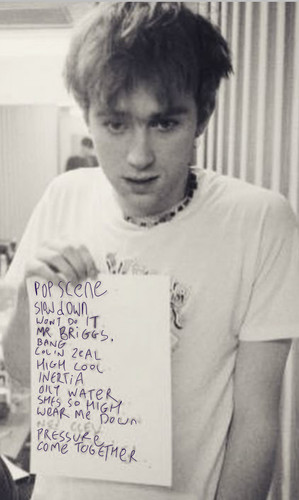 POPSCENE
SLOW DOWN
WONT DO IT
MR BRIGGS.
BANG
COLIN ZEAL
HIGH COOL
INERTIA
OILY WATER
SHES SO HIGH
WEAR ME DOWN
PRESSURE
COME TOGETHER